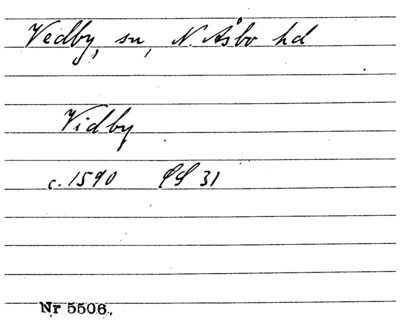 Vedby, sn, N. Åsbo hd
Vidby
c. 1590 31
Nr 5506.